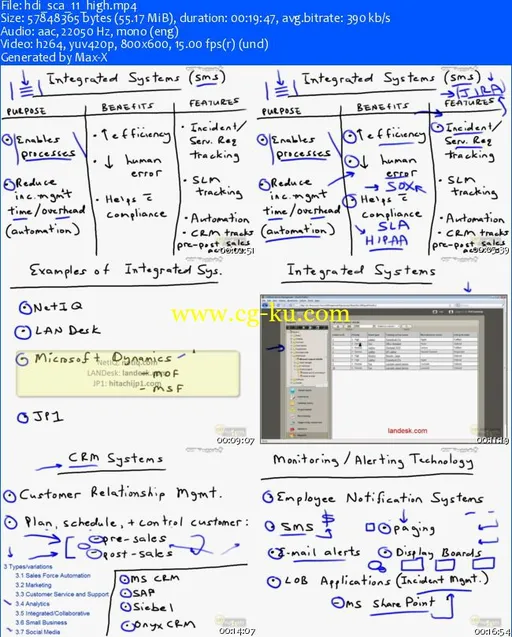 File: hdi_sca_11_high.mp4
Size: 57848365 bytes (55.17 MiB), duration: 00:19:47, avg.bitrate: 390 kb/s
Audio: aac, 22050 Hz, mono (eng)
Video: h264, yuv420p, 800x600, 15.00 fps(r) (und)
Generated by Max-X
Integrated Systems (sms)
PURPOSE
BENEFITS
FEATURES
Enables processes
Reduce inc. mgm't time/overhead (automation)
↑ efficiency
↓ human error
Helps c compliance
Incident/ Serv. Req tracking
SLM tracking
Automation
CRM tracks pre-post sales
Integrated Systems (sms)
JIRA
PURPOSE
BENEFITS
FEATURES
Enables processes
Reduce inc. mgm't time/overhead (automation)
↑ efficiency
↓ human error
→ SOX
Helps c compliance
SLA
HIPAA
Incident/ Serv. Req tracking
SLM tracking
Automation
CRM tracks pre-post sales
Examples of Integrated Sys.
NetIQ
LAN Desk
Microsoft Dynamics
LANDesk: landesk.com
JP1: hitachijp1.com
- MOF
- MSF
JP1
00:09:07
Integrated Systems
landesk.com
www.cg-ku.com
CRM Systems
Customer Relationship Mgmt.
Plan, schedule, + control customer:
pre-sales
post-sales
3 Types/variations
3.1 Sales Force Automation
3.2 Marketing
3.3 Customer Service and Support
3.4 Analytics
3.5 Integrated/Collaborative
3.6 Small Business
3.7 Social Media
MS CRM
SAP
Siebel
Onyx CRM
00:14:07
Monitoring/Alerting Technology
Employee Notification Systems
SMS $
Paging
E-mail alerts
Display Boards
LOB Applications (Incident Mgmt.)
MS SharePoint
00:16:54